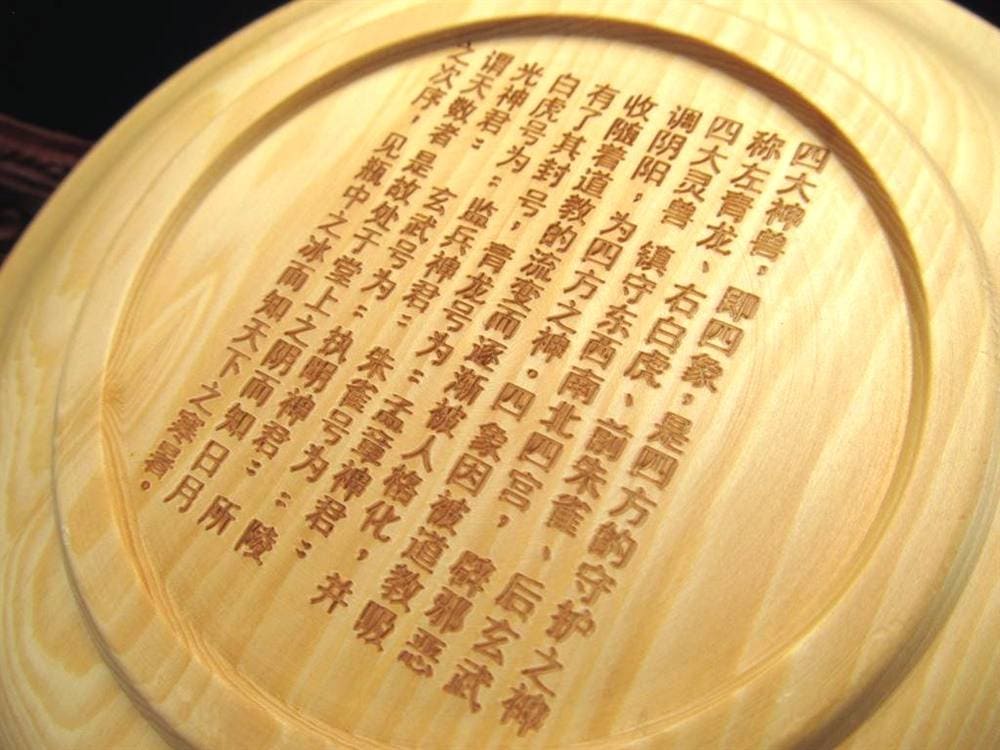 四大神兽，即四象，是四方的守护之神
称左青龙、右白虎、前朱雀、后玄武
四大灵兽 镇守东西南北四宫，辟邪恶
调阴阳，为四方之神。四象因被道教吸
收随着道教的流变而逐渐被人格化，并
有了其封号，青龙号为：孟章神君；
白虎号为：监兵神君；朱雀号为：陵
光神君；玄武号为：执明神君；所
谓天敬者 是故处于堂上之阴而知日月
之次序，见瓶中之冰而知天下之寒暑。